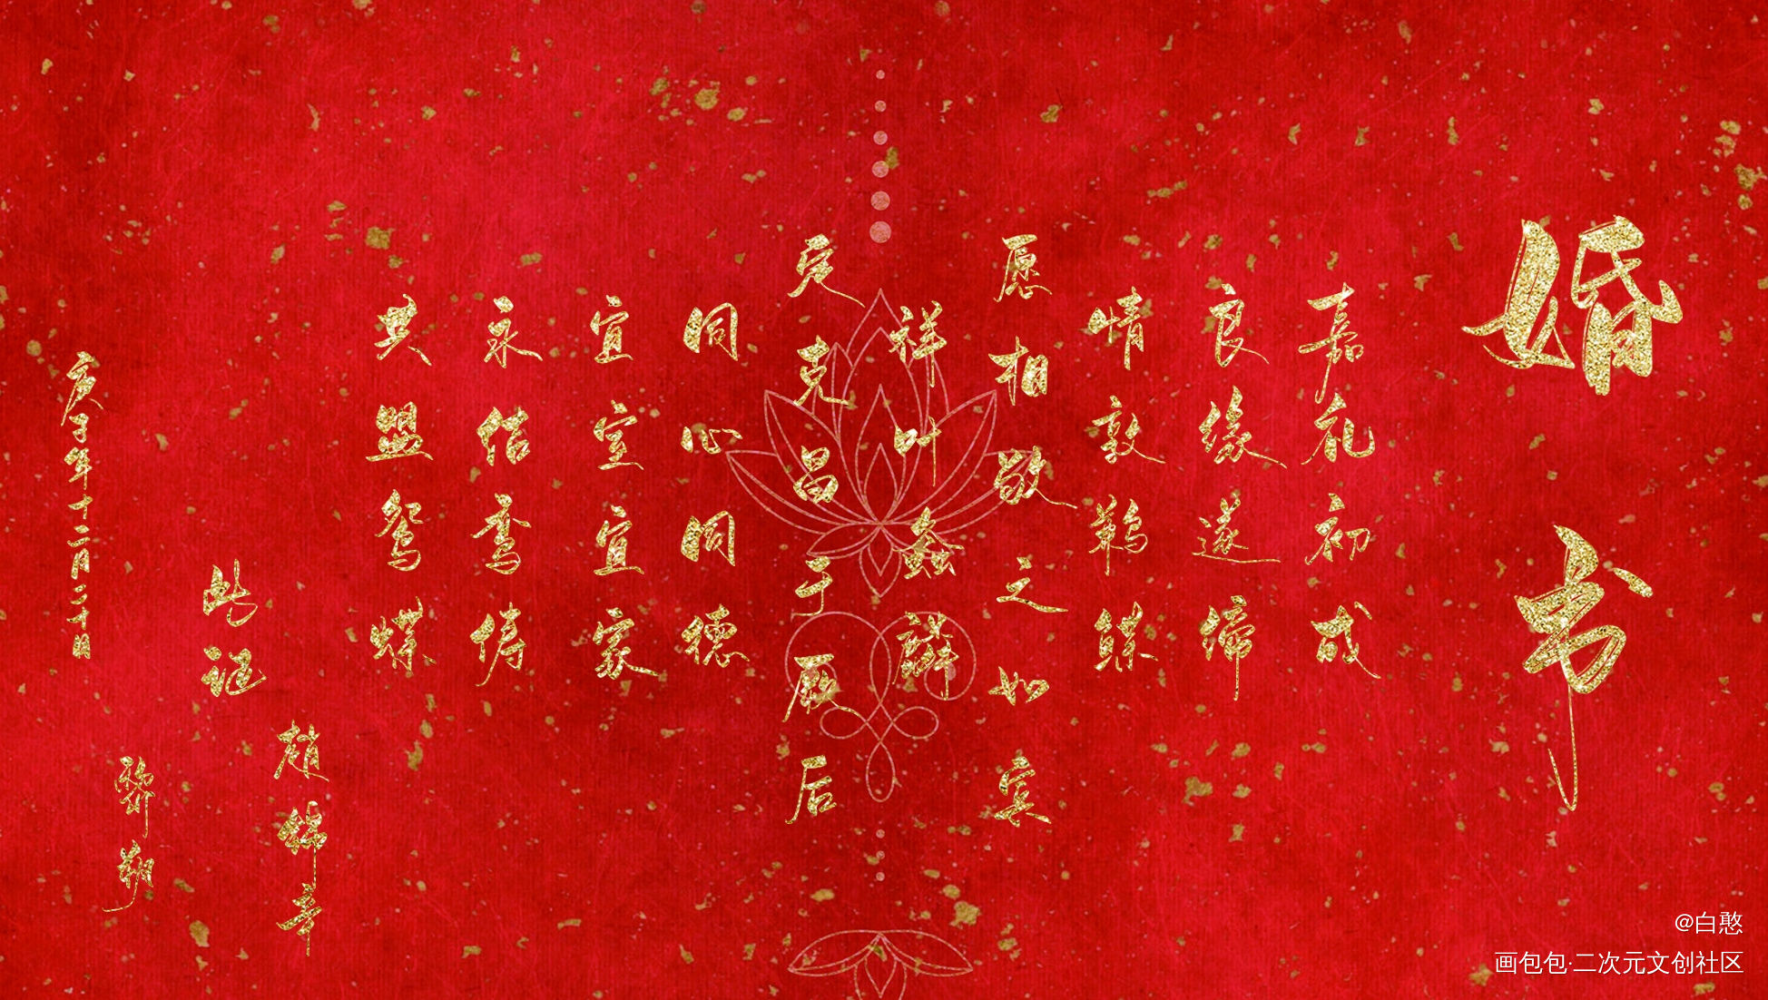 婚书
嘉礼初成
良缘遂缔
情敦鹣鲽
愿相敬之如宾
祥叶螽麟
定克昌于厥后
同心同德
宜室宜家
永偕鸾俦
共盟鸳蝶
此证
趙錦辛
黎朔
庚子年十二月二十日
@白憨
画包包·二次元文创社区